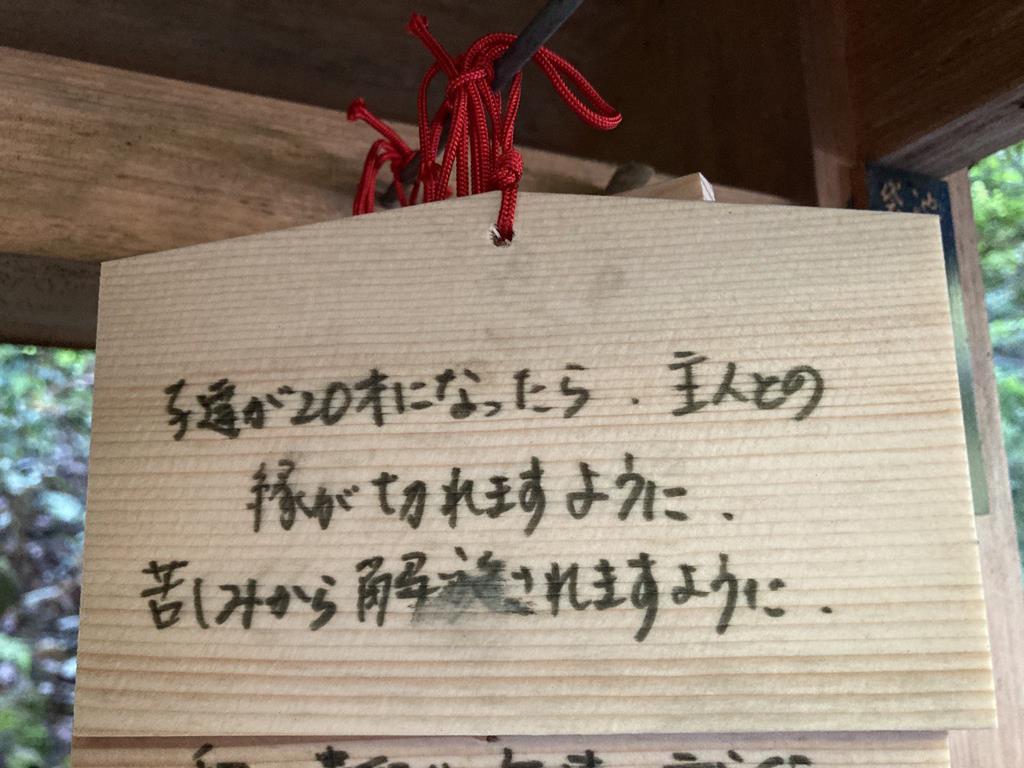 子達が20才になったら．主人との
縁が切れますように．
苦しみから解放されますように．